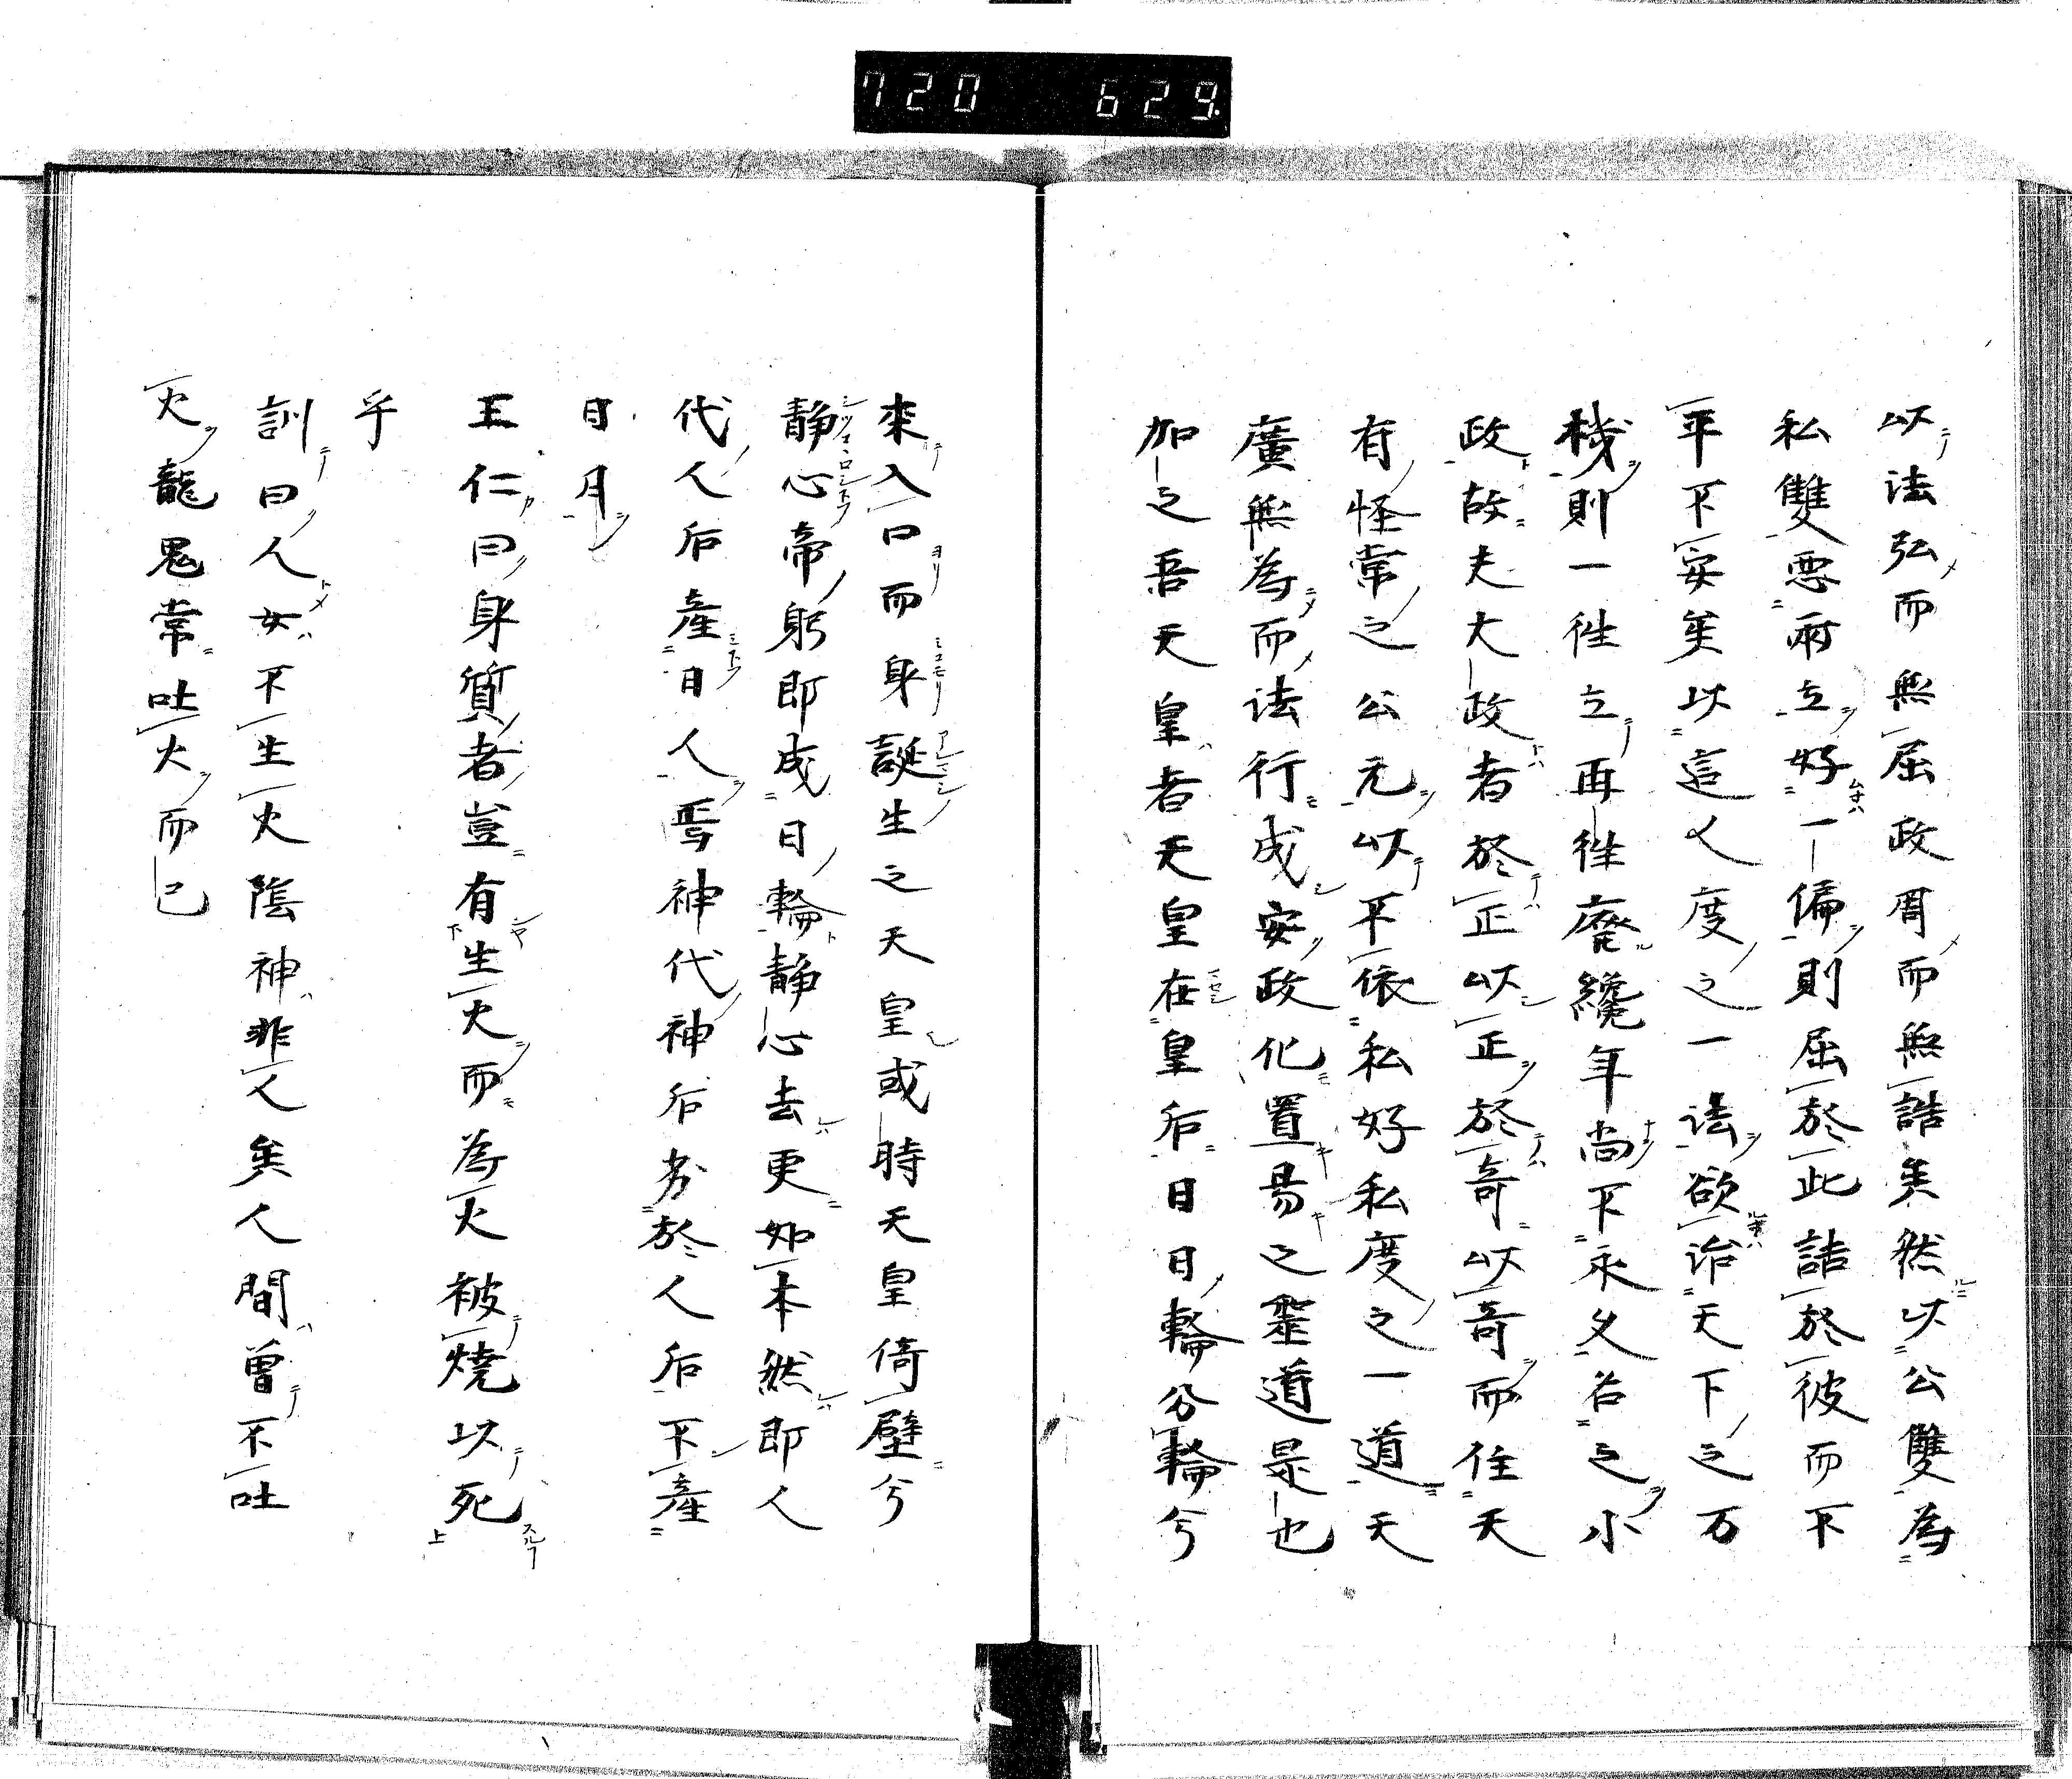 720 629
以法弘而無屈政周而無誥矣然以公雙為
私雙悪両立好一偏則屈於此誥於彼而不
平不安矣以這人度之一法欲治天下之万
機則一徃立再徃廃纔年尚不永久名之小
政故夫大政者於正以正於奇以奇而任天
有怪常之公元以平依私好私度之一道天
廣無為而法行成安政化置易之霊道是也
加之吾天皇者天皇在皇后日日輪分輪兮
来入口而身誕生之天皇或時天皇倚壁兮
静心帝躬即成日輪静心去更如本然即人
代人后産日人焉神代神后劣於人后不産
日月
王仁曰身質者豈有生火而為火被焼以死
乎
訓曰人女不生火陰神非人矣人間曽不吐
火龍鬼常吐火而已